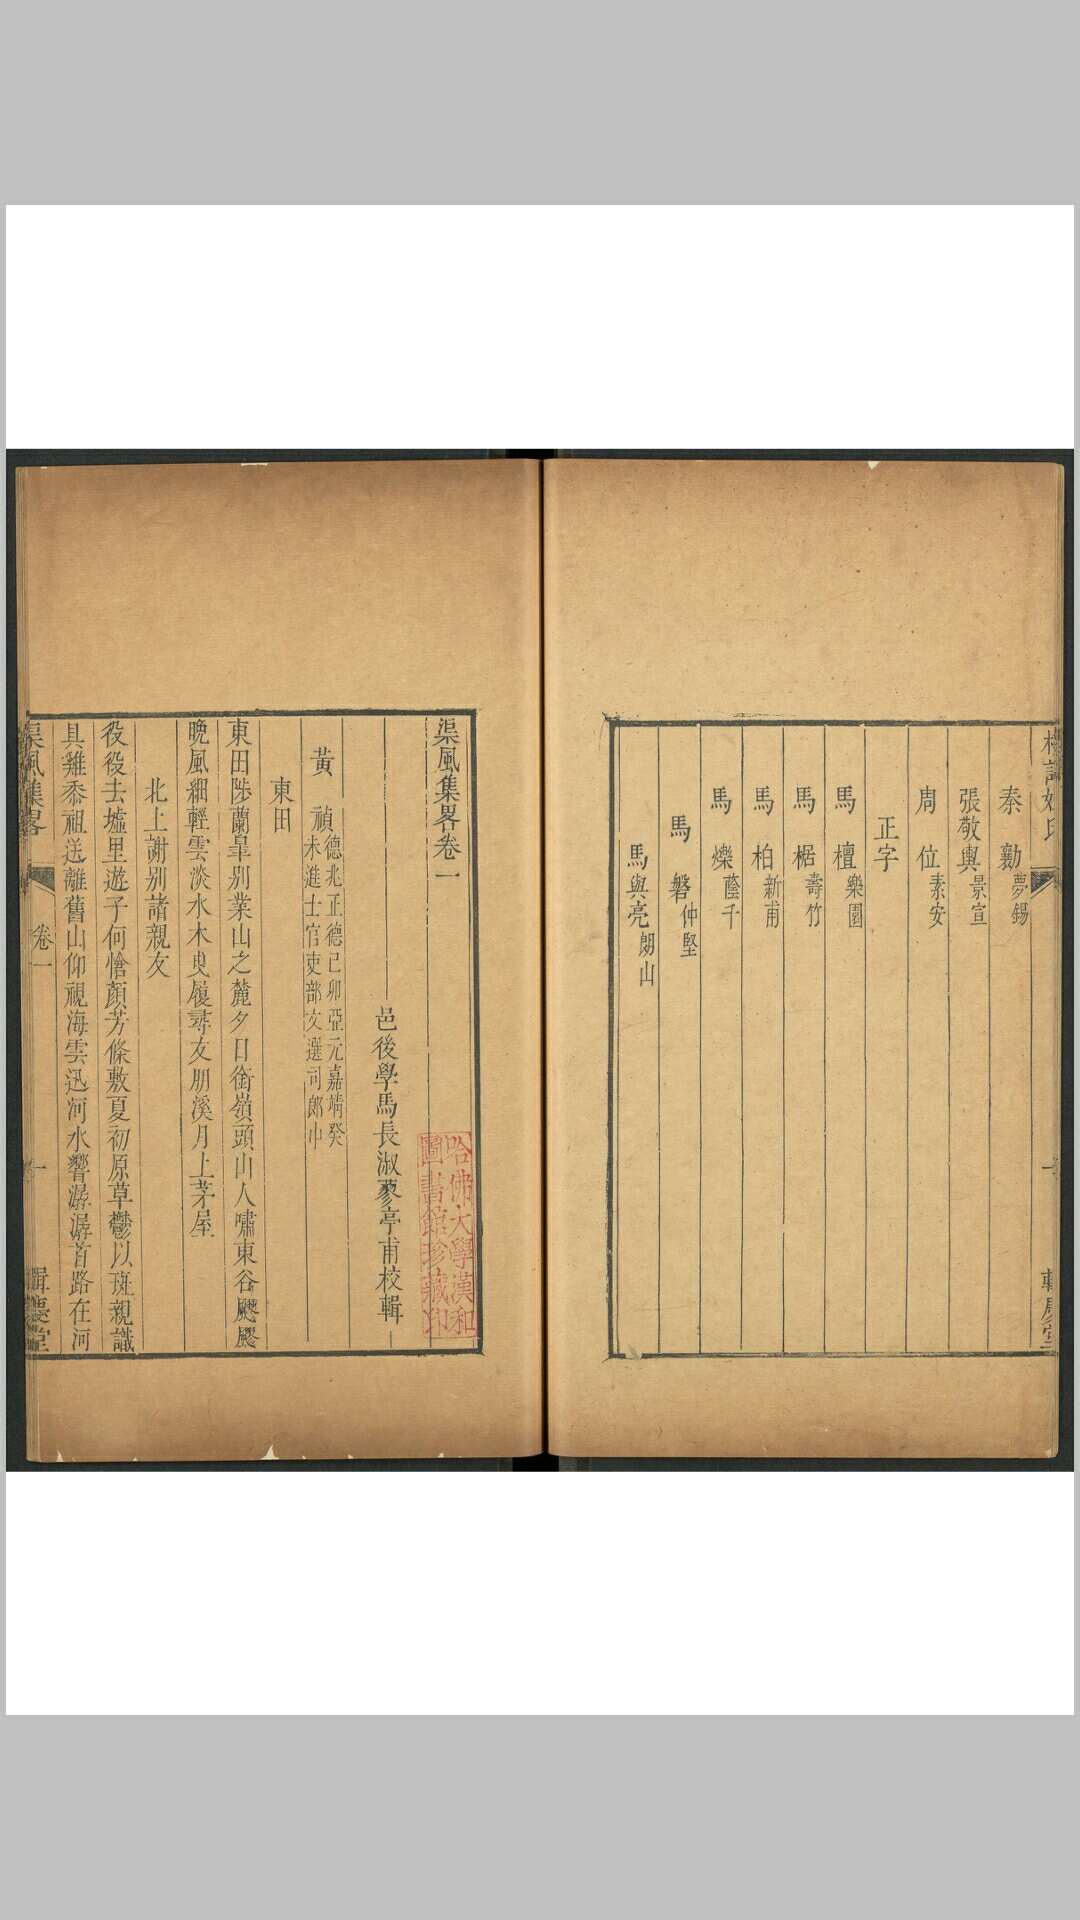 秦勷夢錫
張敬輿景宣
周位素安
正字
馬檀樂園
馬椐壽竹
馬柏新甫
馬爍蔭千
馬磐仲堅
馬與亮朗山
渠風集畧卷一
邑後學馬長淑蓼亭甫校輯
黃禎德兆正德己卯亞元嘉靖癸
未進士官吏部文選司郎中
東田
東田陟蘭皐别業山之麓夕日銜嶺頭山人嘯東谷飂飂
晩風細輕雲淡水木曳履尋友朋溪月上茅屋
北上謝别諸親友
役役去墟里遊子何愴顏芳條敷夏初原草鬱以斑親識
具雞黍祖送離舊山仰視海雲迅河水響潺潺首路在河
渠風集畧
卷一
一
輯慶堂
哈佛大學漢和
圖書館珍藏印